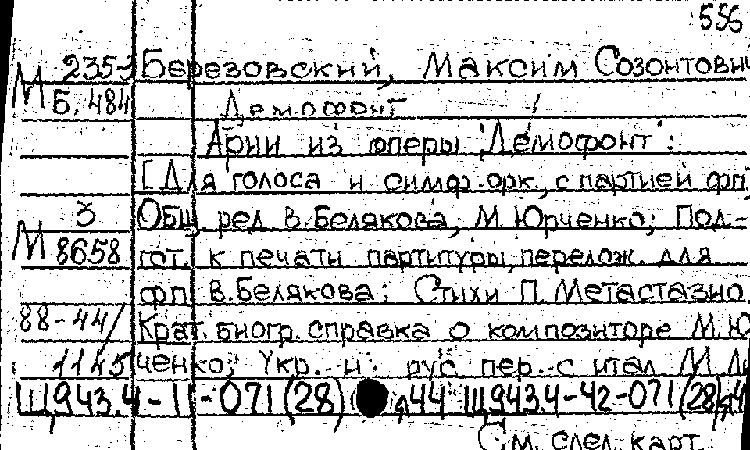 556
М 235-3 Березовский, Максим Созонтович
Б. 484 Демофонт
Арии из оперы "Демофонт":
[Для голоса и симф. орк., с партией фп
З Общ. ред. В. Белякова, М. Юрченко; Под-
М 8658 гот. к печати партитуры, перелож. для
фп. В. Белякова; Стихи П. Метастазио
88-44/ Крат. биогр. справка о композиторе М. Ю
1145 ченко; Укр. и рус. пер. с итал. М.
Щ943.4-11-071(28) я44 Щ943.4-42-071(28)я4
См. след. карт.